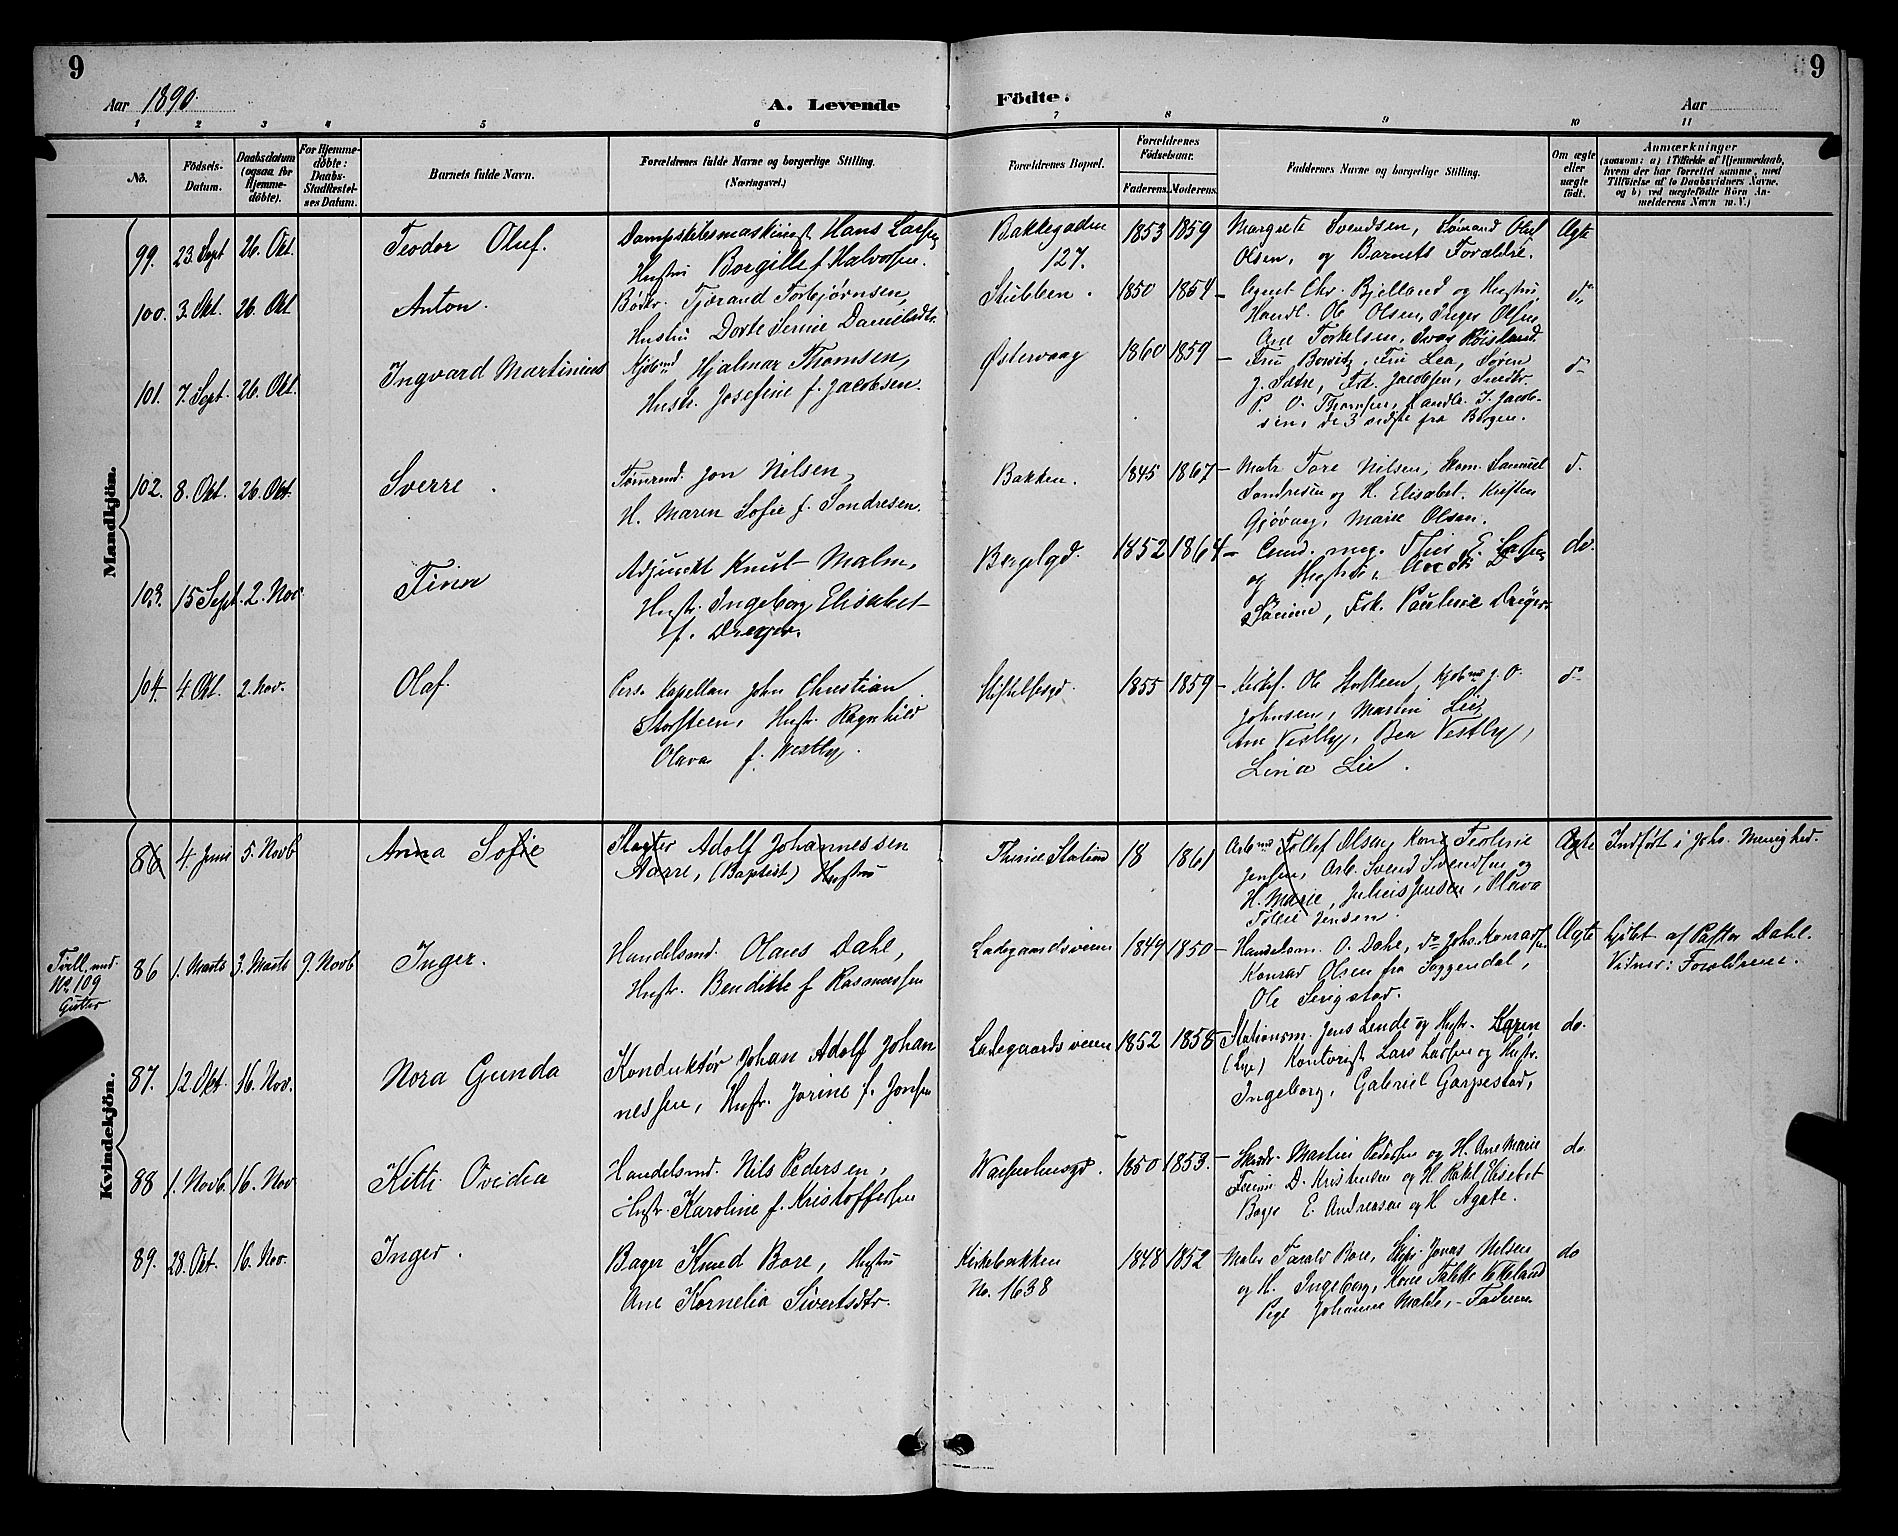 9
Aar 1890.
A. Levende
Födte.
Aar
9
1 2 3 4 5 6 7 8 9 10 11
No.
Födsels-Datum.
Daabsdatum (ogsaa for Hjemmedöbte).
For Hjemmedöbte: Daabs-Stadfæstelses Datum.
Barnets fulde Navn.
Forældrenes fulde Navne og borgerlige Stilling. (Næringsvei.)
Forældrenes Bopæl.
Forældrenes Födselsaar.
Faderens. Moderens.
Faddernes Navne og borgerlige Stilling.
Om ægte eller uægte födt.
Anmærkninger
(saasom: a) i Tilfælde af Hjemmedaab, hvem der har forrettet samme, med Tilföielse af to Daabsvidners Navne, og b) ved uægtefödte Börn Anmelderens Navn m. V.)
Mandkjön.
99. 23. Sept 26. Okt. Teodor Oluf. Dampskibsmaskinist Hans Larsen Bakkegaden 1853 1859 Margrete Svendsen, Sømand Oluf Ægte
Hustru Borgille f. Halvorsen. 127. Olsen, og Barnets Forældre.
100. 3. Okt. 26. Okt Anton. Bødk. Tjørand Torbjørnsen, Stubben. 1850 1854 Agent Chr. Bjelland og Hustru, do
Hustru Dorte Serine Danielsdtr. Handl. Ole Olsen, Inger Olsen,
Ane Torkelsen, Ivar Røisland.
101. 7. Sept. 26. Okt. Ingvard Martinius Kjøbmd Hjalmar Thomsen, Østervaag 1860 1859 Fru Bowitz, Fru Lea, Søren do
Hustr. Josefine f. Jacobsen. J. Sætre, Frk. Jacobsen, Snedkr
P. O. Thomsen, Handl. I. Jacob-
sen, de 3 sidste fra Bergen.
102. 8. Okt. 26. Okt. Sverre. Tømrmd. Jon Nilsen, Bakken. 1845 1867 Matr Tore Nilsen, Skom. Samuel d.
H. Maren Sofie f. Sondresen. Sondresen og H. Elisabet. Kristen
Gjøvaag, Marie Olsen.
103. 15 Sept. 2. Nov. Finn Adjunkt Knut Malm, Bergelgd. 1852 1864 Cand. mag. Thies E. Larsen do.
Hustr. Ingeborg Elisabet og Hustru,
f. Dreyer. Frk. Pauline Dreyer.
104. 4. Okt. 2. Nov. Olaf. Pers. Kapellan John Christian 1855 1859 Ole Storsteen, Kjøbmd J. O. do
Storsteen, Hustr. Ragnhild Johnsen, Martin Lie,
Olava f. Westby. Ane Vestby, Bea Vestby,
Lina Lie.
Kvindekjön.
86 4 Juni 5. Novb Anna Sofie Adolf Johannessen Station 18 1861 Arbmd Tollef Olsen, Kone Teoline Ægte Indført i Joh. Menighed.
Aarre, (Baptist) Hustru Jensen, Arb. Svend Svendsen og
H. Marie, Julius Jensen, Olava
Jensen.
Tvill. med No. 109 Gutter
86 1. Marts 3. Marts 9. Novb Inger. Handelsmd. Olaus Dahl, Ladegaardsveien 1849 1850 Handelsm. O. Dahl, do Johs. Konradsen Ægte af Pastor Dahl.
Hustr. Benditte f Rasmussen Konrad Olsen fra Soggendal, Vidner: Forældrene.
Ole Serigstad.
87. 12 Okt 16. Nov. Nora Gunda Konduktør Johan Adolf Johan Ladegaardsveien 1852 1858 Stationsm. Jens Lende og Hustr. Karen do.
nessen, Hustr. Jorine f. Jonsen (Lye) Kontorist Lars Larsen og Hustr.
Ingeborg, Gabriel Garpestad,
88 1. Novb. 16. Nov Kitti Ovidia Handelsmd. Nils Pedersen, 1850 1853. Martin Pedersen og H. Ane Marie do
Hustr. Karoline f. Kristoffersen D. Kristensen og H. Rakel Elisebet
E. Andreasen og H. Agate.
89. 28. Okt. 16. Nov. Inger. Bager Knud Bore, Hustru Kirkebakken 1848 1852 Maler Tarald Bore, Jonas Nilsen do
Ane Kornelia Sivertsdtr. No. 1638 og H. Ingeborg, Kone Talette Vetteland
Pige Johanne Malde, Faderen.